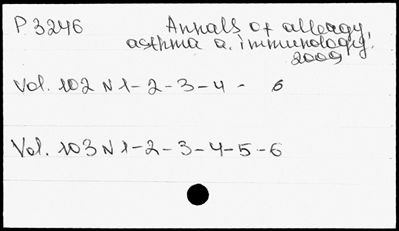 P 3246 Annals of allergy,
asthma a. immunology.
2009
Vol. 102 N 1-2-3-4- 6
Vol. 103 N 1-2-3-4-5-6